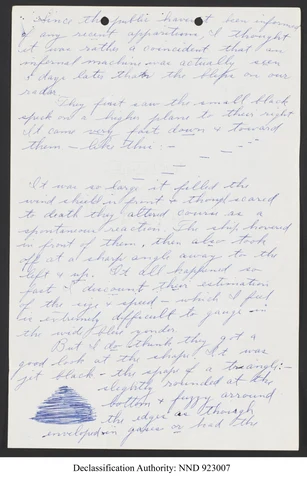 Since the public haven't been informed
of any recent apparitions, I thought
it was rather a coincident that an
infernal machine was actually seen
days later than the blips on our
radar.
They first saw the small black
speck on a higher plane to their right
It came very fast down & toward
them — like this: -
It was so large it filled the
wind shield in front & though scared
to death they altered course as a
spontaneous reaction. The ship hovered
in front of them, then also took
off at a sharp angle away to the
left & up. It all happened so
fast I discount their estimation
of the size & speed — which I feel
is extremely difficult to gauge in
the wild blue yonder.
But I do think they got a
good look at the shape. It was
jet black - the shape of a triangle: -
slightly rounded at the
bottom & fuzzy arround
the edges as though
enveloped in gases or had the
Declassification Authority: NND 923007